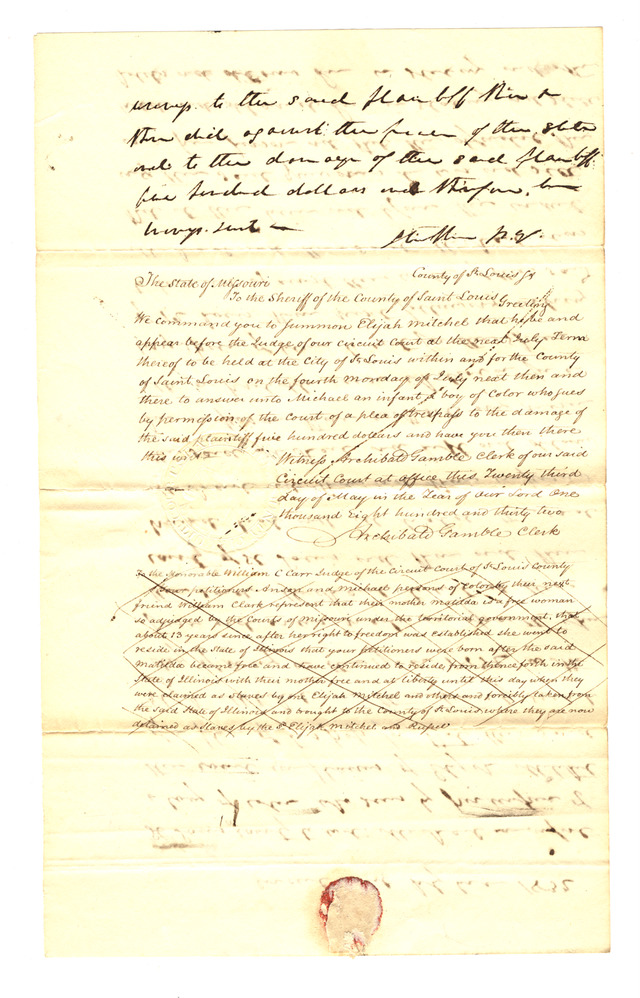 wrongs to the said plaintiff then &
there did against the peace of the State
and to the damage of the said plaintiff
five hundred dollars and therefore he
brings suit —
p. q.
County of St Louis Ss
The State of Missouri
To the Sheriff of the County of Saint Louis Greeting
We command you to summon Elijah Mitchel that he be and
appear before the Judge of our Circuit Court at the next July Term
thereof to be held at the City of St Louis within and for the County
of Saint Louis on the fourth monday of July next then and
there to answer unto Michael an infant & boy of Color who sues
by permission of the Court of a plea of trespass to the damage of
the said plaintiff five hundred dollars and have you then there
this writ
Witness Archibald Gamble Clerk of our said
Circuit Court at office this Twenty third
day of May in the Year of our Lord One
thousand Eight hundred and thirty two
Archibald Gamble Clerk
To the Honorable William C Carr Judge of the Circuit Court of St Louis County
Your petitioners Anson and Michael persons of Color by their next
friend William Clark represent that their mother Matilda is a free woman
so adjudged by the Courts of Missouri under the territorial government, that
about 13 years since after her right to freedom was established she went to
reside in the State of Illinois that your petitioners were born after the said
Matilda became free and have continued to reside from thence forth in the
State of Illinois with their mother free and at liberty until this day when they
were claimed as slaves by one Elijah Mitchel and others and forcibly taken from
the said State of Illinois and brought to the County of St Louis where they are now
detained as slaves by the Sd Elijah Mitchel and Russel